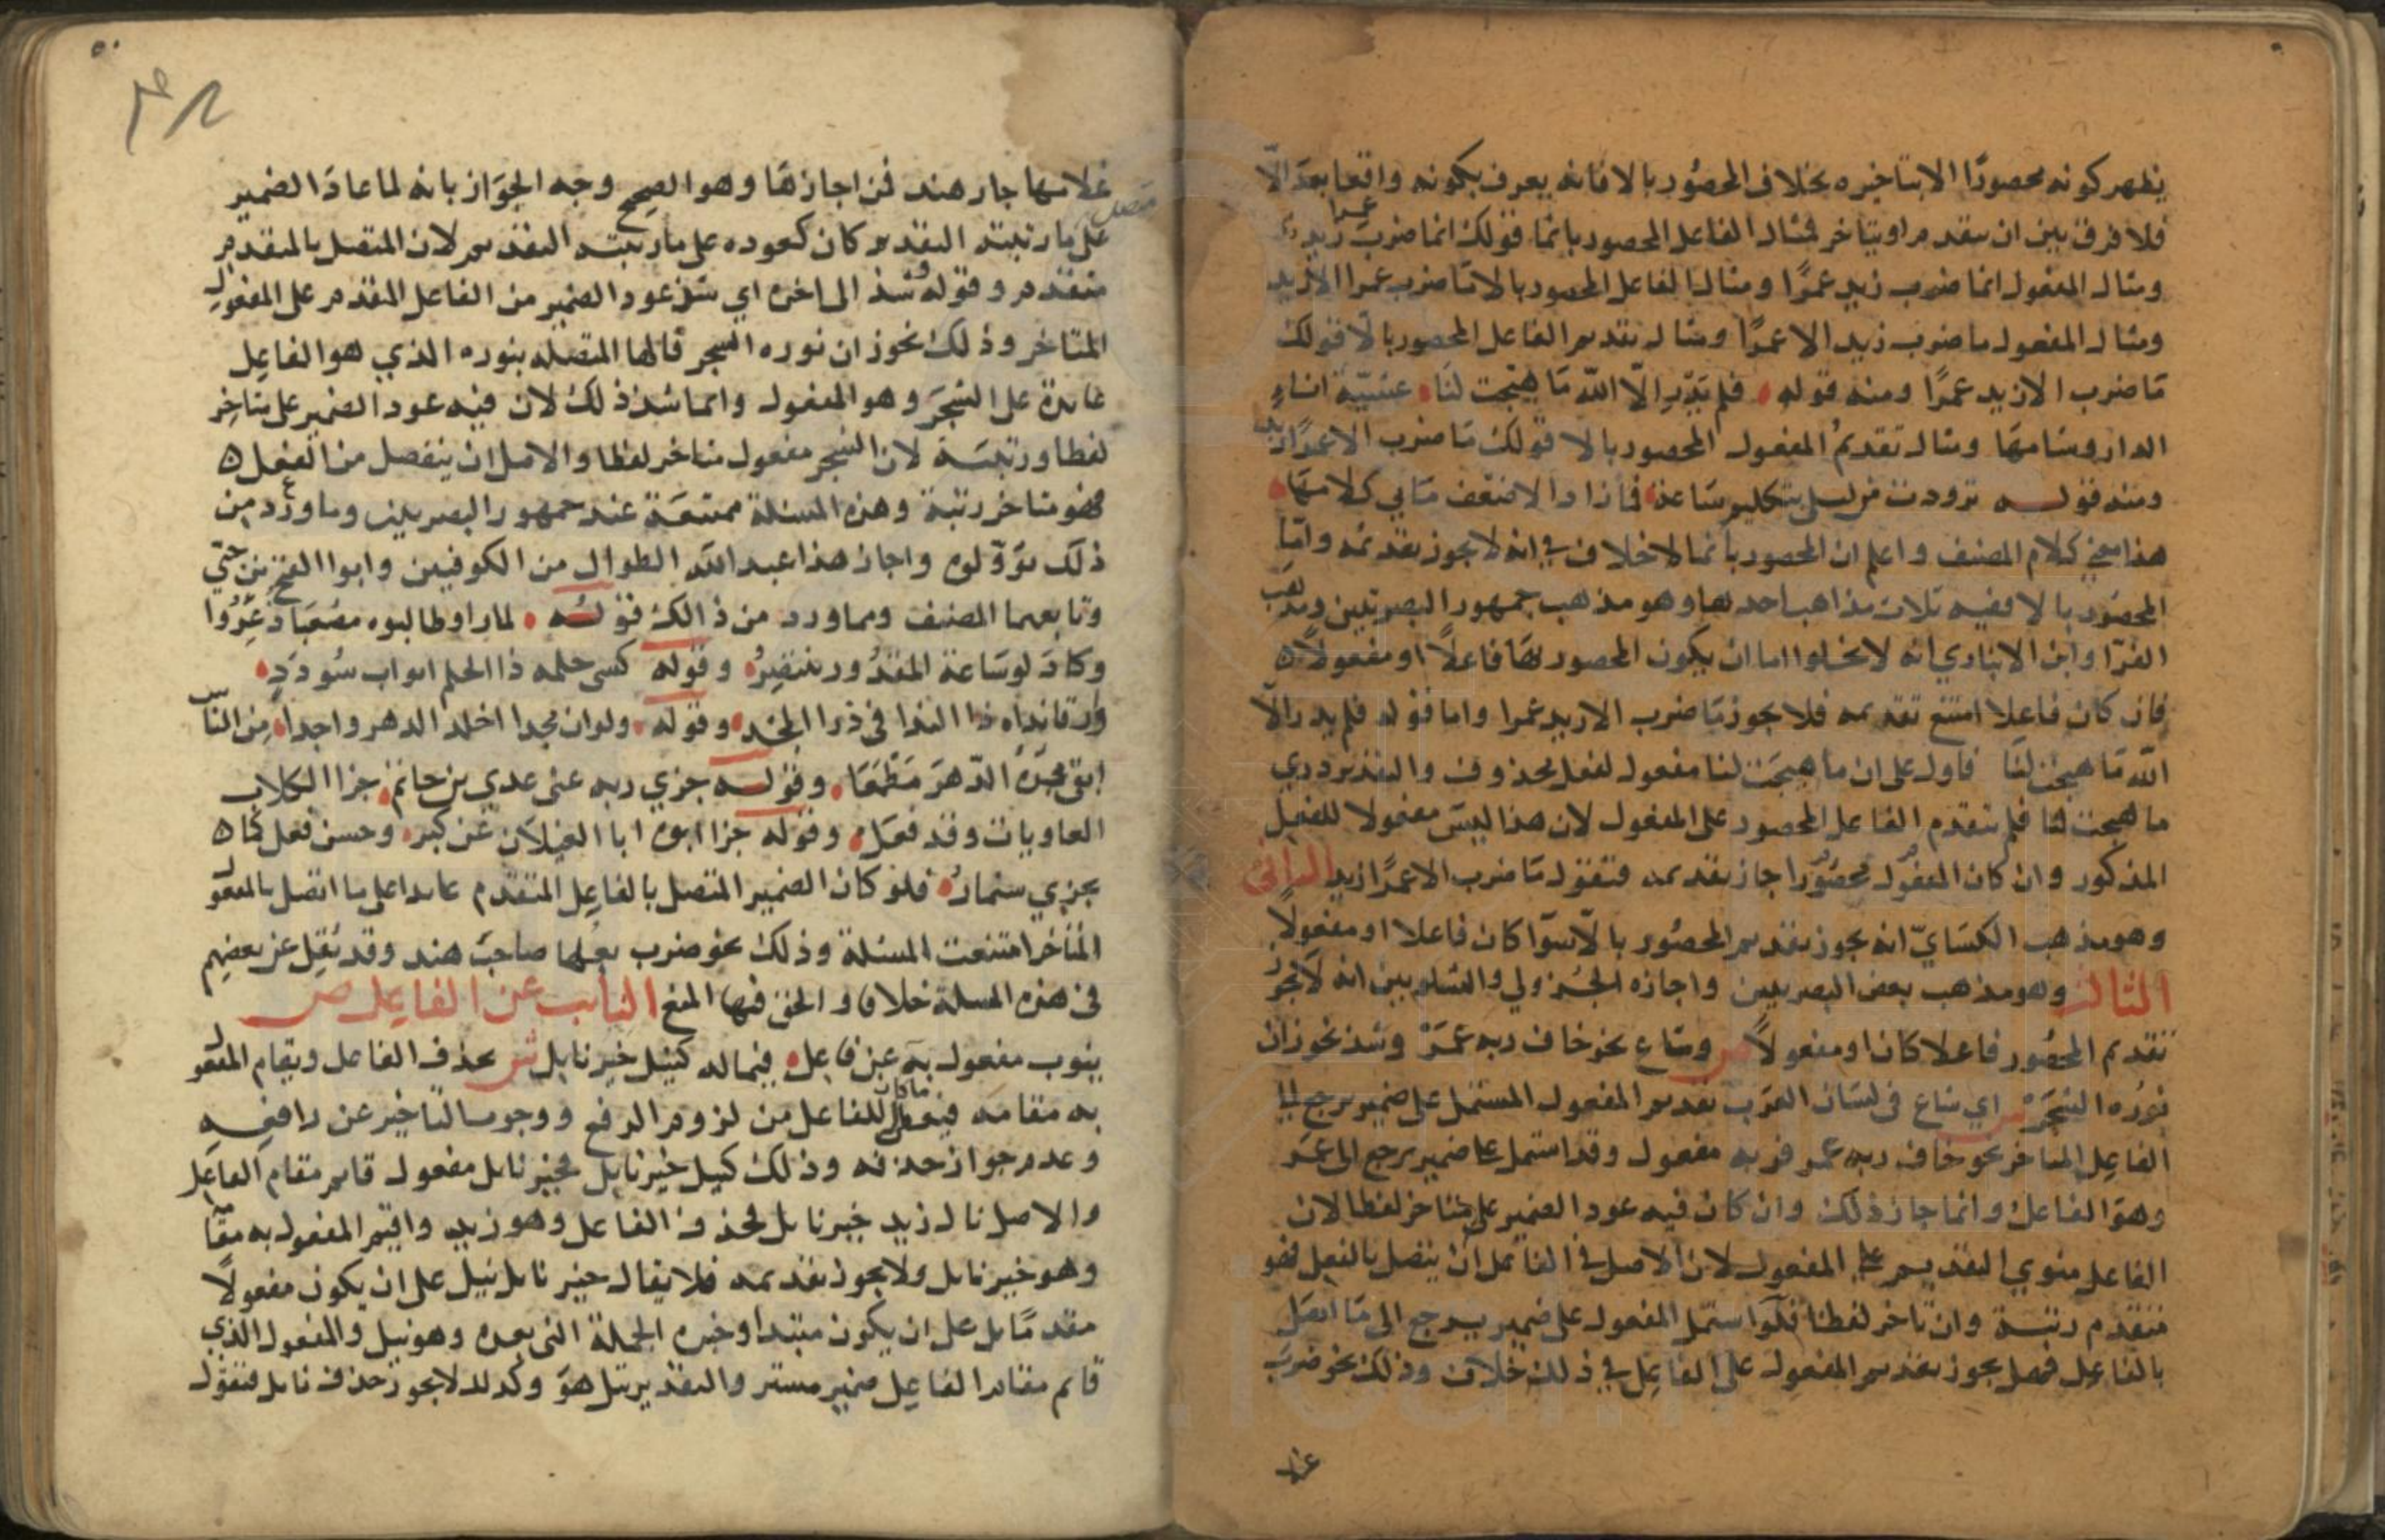 يظهر كونه محصورًا الا بتاخيره بخلاف المحصُور بالا فانه يعرف بكونه واقعا بعد الّا
فلا فرق بين ان يتقدم او يتاخر فمثال الفاعل المحصور بانما قولك انما ضرب عمرا زيد
ومثال المفعول انما ضرب زيد عمرًا ومثال الفاعل المحصور بالا ما ضرب عمرا الا زيد
ومثال المفعول ما ضرب زيد الا عمرًا ومثال تقديم الفاعل المحصور بالّا قولك
مَا ضرب الا زيد عمرًا ومنه قوله فلم يَدْرِ الّا الله مَا هيّجت لنَا عشيّة اناء
الدار وشامهَا ومثال تقديمُ المفعول المحصور بالا قولك مَا ضرب الا عمرًا زيد
ومنه قوله تزودت من ليلى بتكليم سَاعة فما زاد الا ضعف مَا بي كلامهَا
هذا معنى كلام المصنف واعلم ان المحصور بانما لا خلاف في انه لا يجوز تقديمه وامّا
المحصُور بالا ففيه ثلاث مذاهب احدها وهو مذهب جمهور البصريين ومذهب
الفرّا وابن الانباري انه لا يخلوا اما ان يكون المحصور بهَا فاعلاً او مفعولاً ه
فان كان فاعلا امتنع تقديمه فلا يجوز مَا ضرب الا زيد عمرا واما قوله فلم يدر الّا
الله مَا هيجت لنَا فاول على ان ما هيجَت لنا مفعول لفعل محذوف والتقدير دري
ما هيجت لنا فلم يتقدم الفاعل المحصور على المفعول لان هذا ليسَ مفعولا للفعل
المذكور وان كان المفعُول محصُورًا جاز تقديمه فتقول مَا ضرب الا عمرًا زيد الثانى
وهو مذهب الكسَايّ انه يجوز تقديم المحصُور بالّا سوَا كان فاعلا او مفعولاً
الثالث وهو مذهب بعض البصريين واجازه الجُزولي والشلوبين انه لَا يجوز
تقديم المحصُور فاعلا كان او مفعولاً ص وشاع نحو خاف ربه عمَرْ وشذ نحو زان
نوره الشجَرْ ش اي شاع في لسَان العرَب تقديم المفعول المشتمل على ضمير يرجع الى
الفاعل المتاخر نحو خاف ربه عمر فربه مفعول وقد اشتمل على ضمير يرجع الى عمَر
وهوَ الفاعل وانما جاز ذلك وان كان فيه عود الضمير على متاخر لفظا لان
الفاعل منوي التقديم على المفعول لان الاصل في الفاعل ان يتصل بالفعل فهو
متقدم رتبة وان تاخر لفظا فلو اشتمل المفعول على ضمير يرجع الى مَا اتصل
بالفاعل فهل يجوز تقديم المفعول على الفاعل في ذلك خلاف وذلك نحو ضربَ
غلا
٥٠
غلامها جار هند فمن اجازهَا وهو الصحيح وجه الجوَاز بانه لما عادَ الضمير
على ما رتبته التقديم كان كعوده على ما رتبته التقديم لان المتصل بالمتقدم
متقدم وقوله شذ الى اخره اي شذ عود الضمير من الفاعل المتقدم على المفعول
المتاخر وذلك نحو زان نوره الشجر فالها المتصله بنوره الذي هو الفاعل
عايدة على الشجَر وهو المفعول وانما شذ ذلك لان فيه عود الضمير على متاخر
لفظا ورتبَة لان الشجر مفعول متاخر لفظا والاصل ان ينفصل من الفعل ه
فهو متاخر رتبة وهذه المسئلة ممتنعَة عند جمهور البصريين وما ورد من
ذلك تؤوّلوه واجاز هذا عبد الله الطوال من الكوفيين وابوا الفتح بن جنّي
وتابعهما المصنف ومما ورد من ذالك قوله لما راو طالبوه مصُعَبا ذعِرُوا
وكادَ لو سَاعدَ المقدُور ينتصِرُ وقوله كسى حلمه ذا الحلم اثواب سُودَدٍ
ورقا نداه ذا الندا في ذرا المجد وقوله ولو ان مجدا اخلد الدهر واحدا مِن الناس
ابقى مجدَهُ الدّهرَ مَطْعَمَا وقوله جزي ربه عنى عدي بن حاتمٍ جزا الكلاب
العاويات وقد فعَل وقوله جزا ابوه ابا الغيلَان عن كبر وحسن فعل كما ه
يجزي سنمارُ فلو كان الضمير المتصل بالفاعل المتقدم عايدا على ما اتصل بالمفعول
المتاخر امتنعت المسئلة وذلك نحو ضرب بعلها صاحبَ هند وقد نُقِل عن بعضهم
في هذه المسلة خلافا والحق فيها المنع النايب عن الفاعل ص
ينوب مفعول به عن فاعل فيما له كنيل خير نايل ش يحذف الفاعل ويقام المفعول
به مقامه فيعطى ما كان للفاعل من لزوم الرفع ووجوب التاخير عن رافعِه
وعدم جواز حذفه وذلك كنيل خير نايل فخير نايل مفعول قايم مقام الفاعل
والاصل نال زيد خير نايل فحذف الفاعل وهو زيد واقيم المفعول به مقامه
وهو خير نايل ولا يجوز تقديمه فلا يقال خير نايل نيل على ان يكون مفعولاً
مقدمًا بل على ان يكون مبتدا وخبره الجملة التى بعده وهو نيل والمفعول الذي
قام مقام الفاعل ضمير مستتر والتقدير نيل هوَ وكذلك لا يجوز حذف نايل فتقول